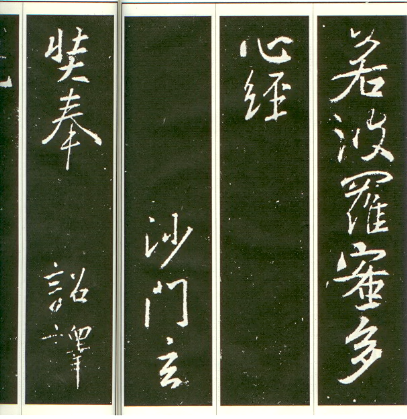 若波羅蜜多
心經
沙門玄
奘奉 詔譯